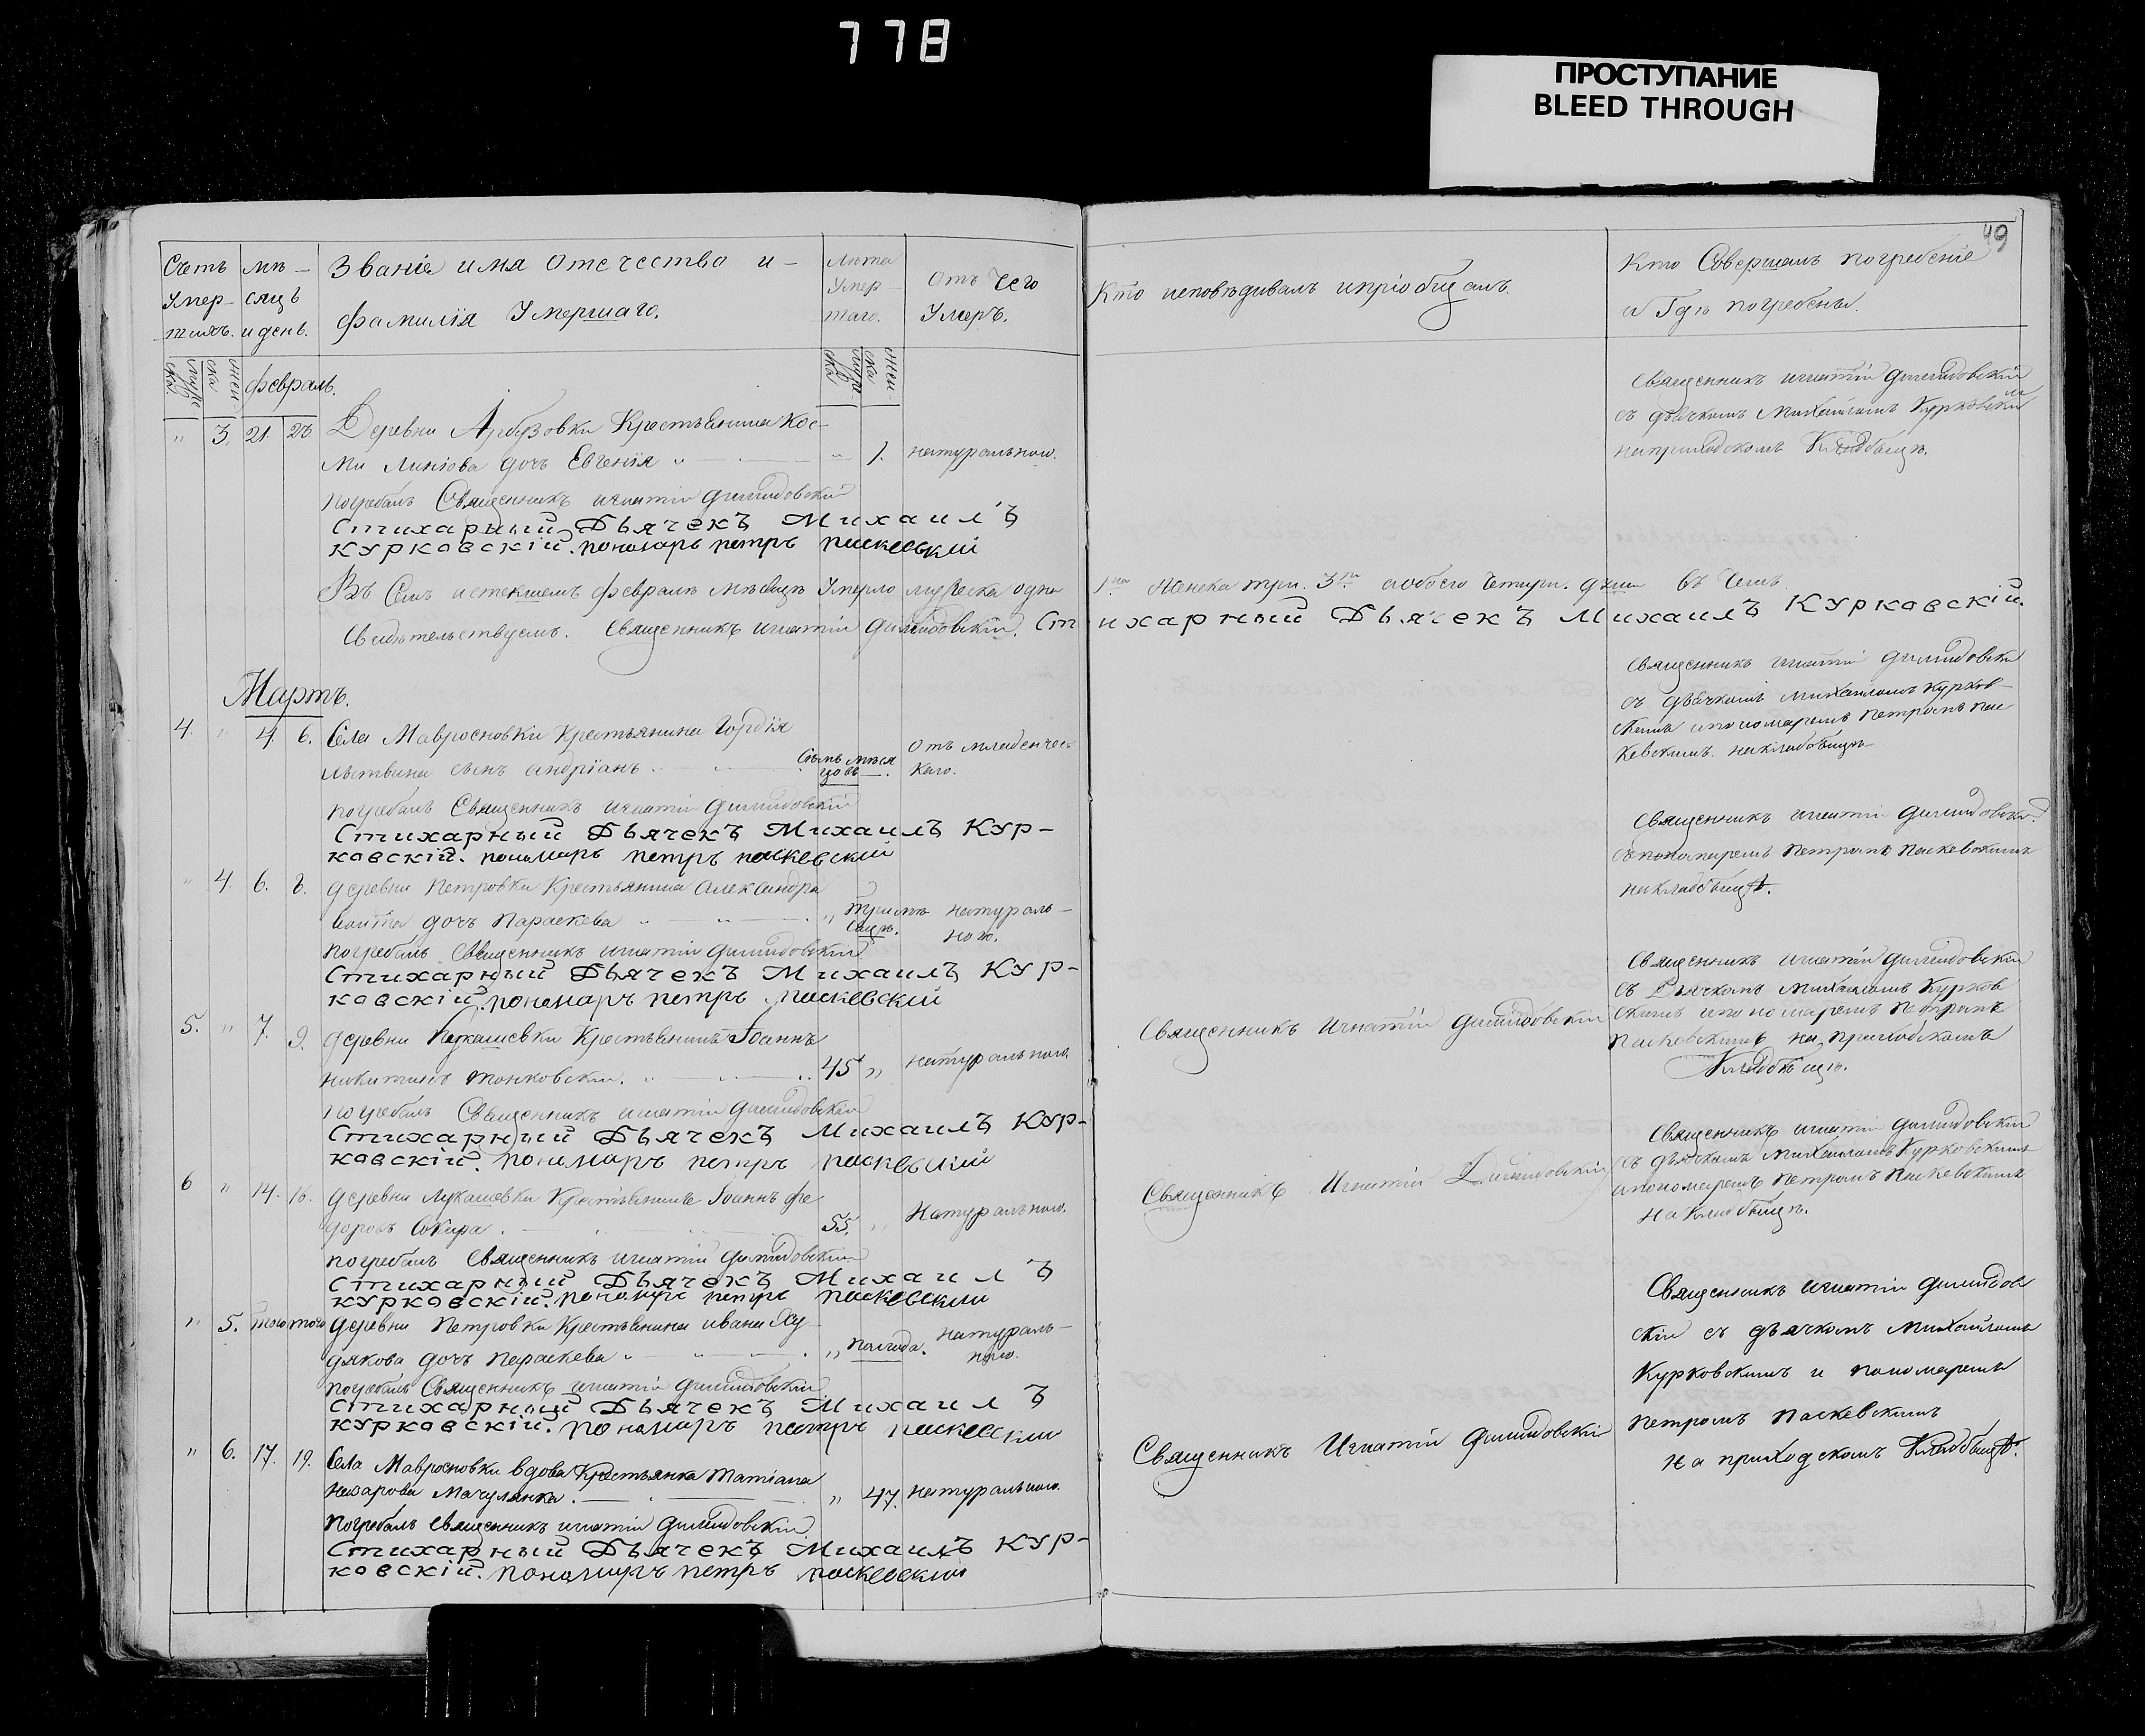 778
ПРОСТУПАНИЕ
BLEED THROUGH
49
Счетъ
Умер-
шихъ.
мѣ-
сяцъ
и день.
Званіе имя отечество и-
фамилія Умершаго.
Лѣта
Умер-
шаго.
Отъ чего
Умеръ.
Кто исповѣдивалъ и пріобщалъ.
Кто Совершалъ погребеніе
и Гдѣ погребены.
муже
ска.
жен
ска
муже
ска.
жен
ска
февраль.
" 3. 21. 23 Деревни Арбузовки Крестьянина Кос-
мы дочь Евгенія " 1. натуральной.
Священникъ игнатій
съ дьячкомъ Михаиломъ Курковским
на приходскомъ Кладбищѣ.
погребалъ Священникъ игнатій
Стихарный Дьячекъ Михаилъ
Курковскій. пономарь петръ паскевскій
Въ Семъ истекшемъ февралѣ мѣсяцѣ Умерло мужеска одна
1на Женска три. 3ри обоего Четыри. души въ Чемъ
Свидѣтельствуемъ. Священникъ игнатій Ст
ихарный Дьячекъ Михаилъ Курковскій.
Мартъ.
4. " 4. 6. Села Мавросновки Крестьянина Гордія
сынъ андріанъ. Семь мѣся
цовъ. Отъ младенчес
каго.
Священникъ игнатій
съ дьячкомъ михаиломъ курков-
скимъ и пономаремъ петромъ пас
кевскимъ на кладбищѣ
погребалъ Священникъ игнатій
Стихарный Дьячекъ Михаилъ Кур-
ковскій. пономарь петръ паскевскій
" 4. 6. 8. деревни Петровки Крестьянина Александра
дочь Параскева " натураль-
ной.
Священникъ игнатій
съ пономаремъ петромъ паскевскимъ
на кладбищѣ.
погребалъ Священникъ игнатій
Стихарный Дьячекъ Михаилъ Кур-
ковскій. пономарь петръ паскевскій
5. " 7. 9. деревни Лукашевки Крестьянинъ Іоаннъ
никитинъ 45 " натуральной
Священникъ Игнатій
Священникъ игнатій
съ Дьячкомъ михаиломъ Курков
скимъ и пономаремъ петромъ
паскевскимъ на приходскомъ
Кладбищѣ.
погребалъ Священникъ игнатій
Стихарный Дьячекъ Михаилъ Кур-
ковскій. пономарь петръ паскевскій
6 " 14. 16. деревни лукашевки Крестьянинъ Іоаннъ фе
доровъ 55. " Натуральной.
Священникъ Игнатій
Священникъ игнатій
съ дьячкомъ михаиломъ Курковскимъ
и пономаремъ петромъ паскевскимъ
на Кладбищѣ.
погребалъ Священникъ игнатій
Стихарный Дьячекъ Михаилъ
курковскій. пономарь петръ паскевскій
" 5. того того деревни Петровки Крестьянина ивана Ху
дякова дочь параскева " полгода. натураль-
ной.
Священникъ игнатій
скій съ дьячкомъ михаиломъ
Курковскимъ и пономаремъ
петромъ паскевскимъ
погребалъ Священникъ игнатій
Стихарный Дьячекъ Михаилъ
курковскій. пономарь петръ паскевскій
" 6. 17. 19. Села Мавросновки вдова Крестьянка татіана
назарова " 47. натуральной.
Священникъ Игнатій
на приходскомъ Кладбищѣ.
погребалъ священникъ игнатій
Стихарный Дьячекъ Михаилъ Кур-
ковскій. пономарь петръ паскевскій